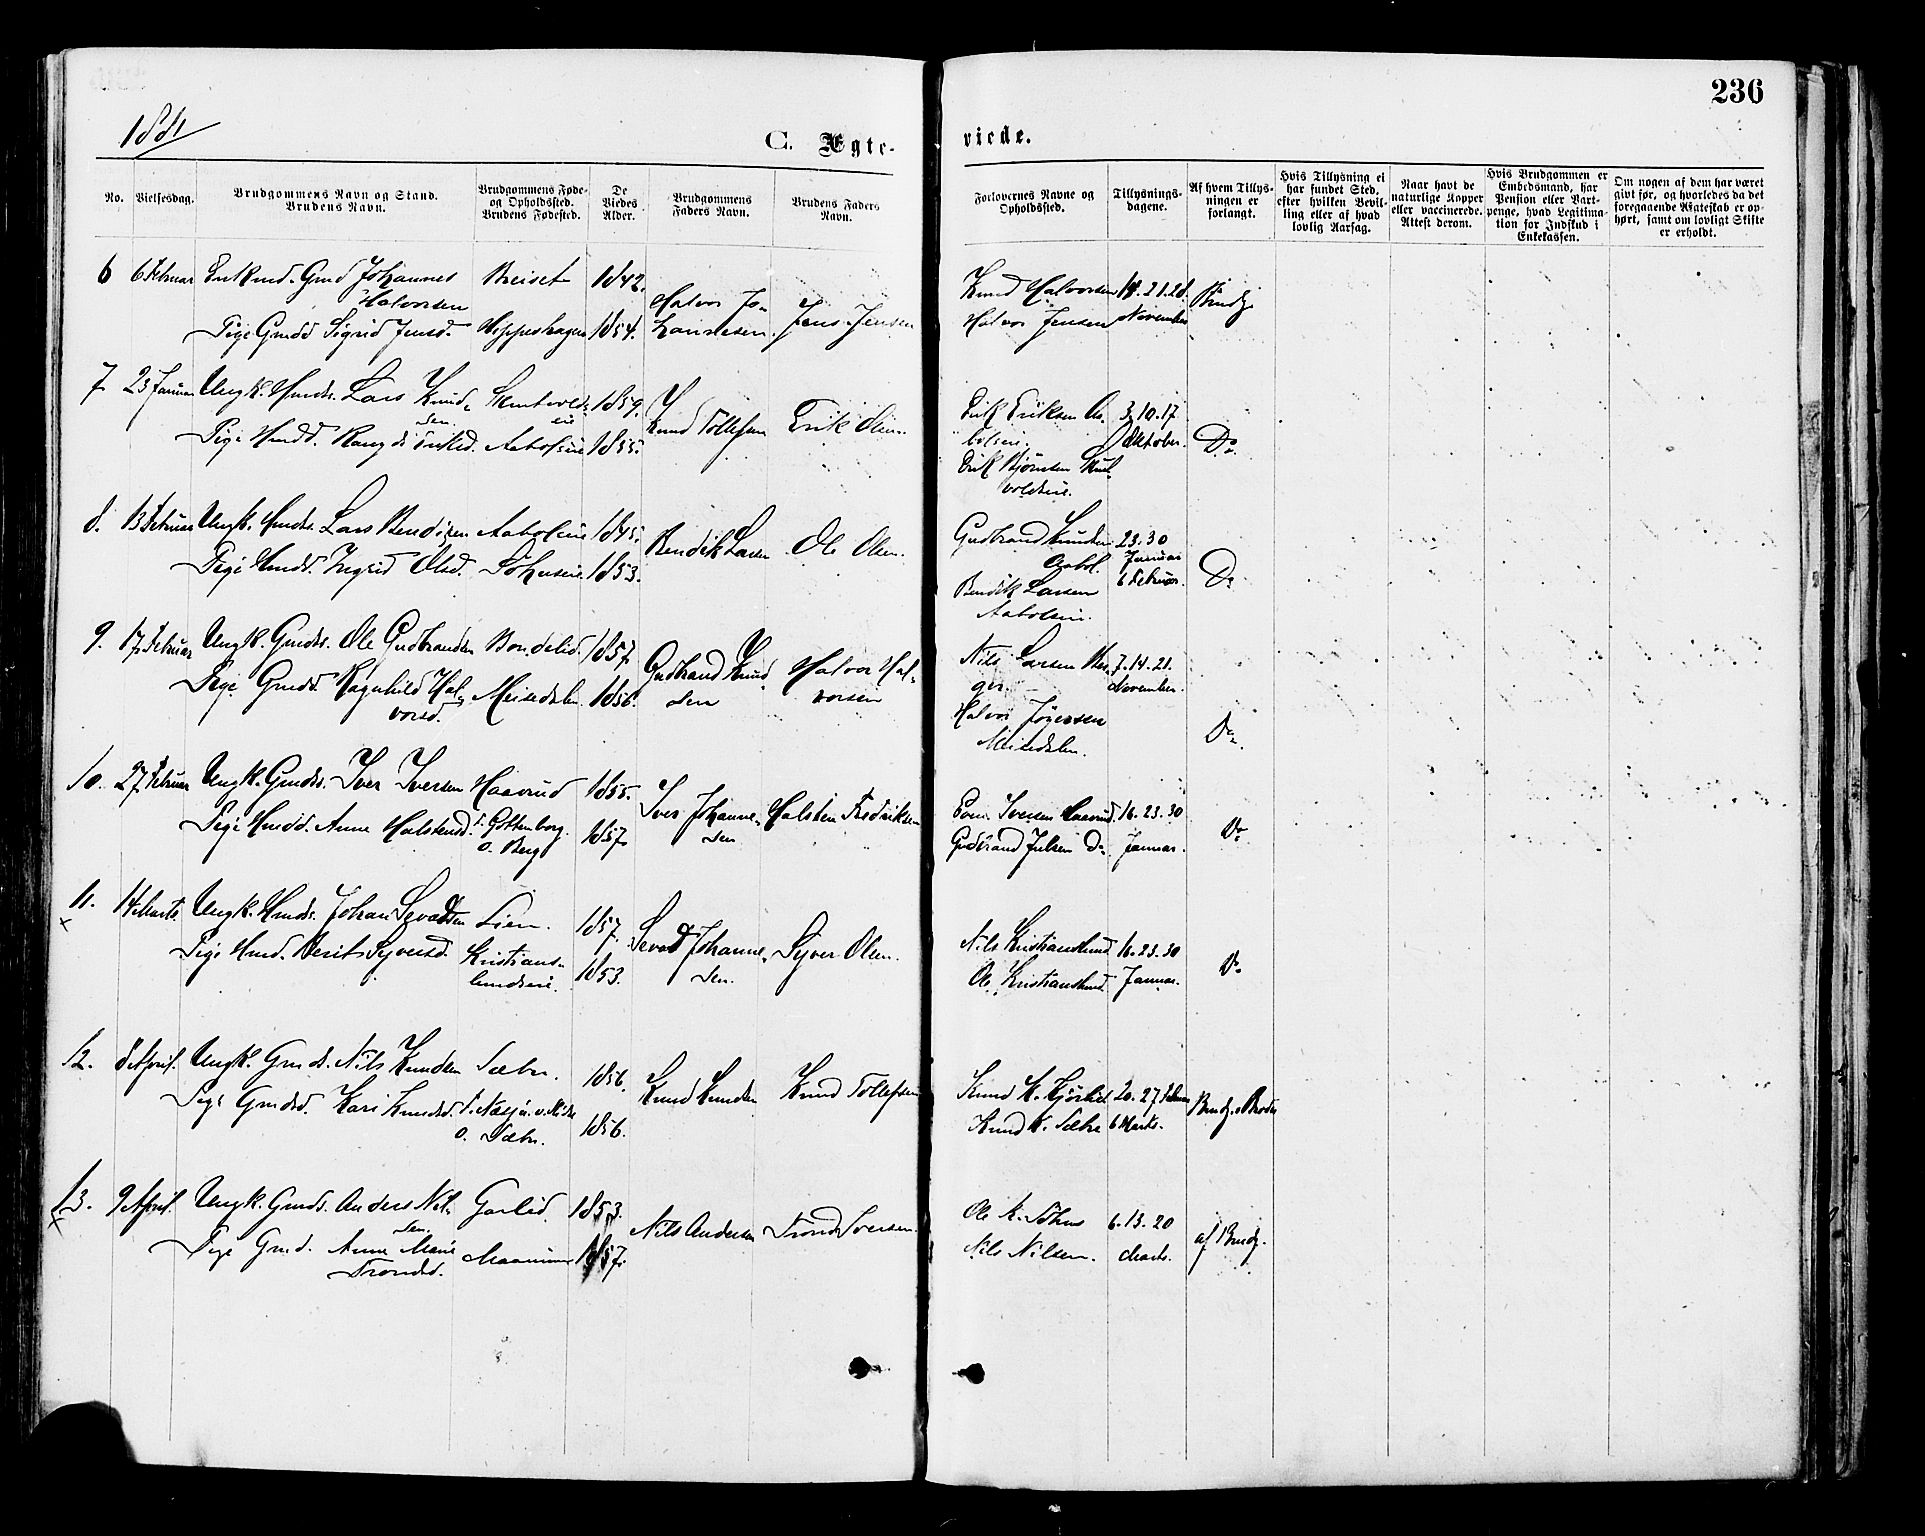 236
1881
C. Ægte-
viede.
No.
Vielsesdag.
Brudgommens Navn og Stand.
Brudens Navn.
Brudgommens Føde-
og Opholdssted.
Brudens Fødested.
De
Viedes
Alder.
Brudgommens
Faders Navn.
Brudens Faders
Navn.
Forlovernes Navne og
Opholdssted.
Tillysnings-
dagene.
Af hvem Tillys-
ningen er
forlangt.
Hvis Tillysning ei
har fundet Sted,
efter hvilken Bevil-
ling eller af hvad
lovlig Aarsag.
Naar havt de
naturlige Kopper
eller vaccinerede.
Attest derom.
Hvis Brudgommen er
Embedsmand, har
Pension eller Vart-
penge, hvad Legitima-
tion for Indskud i
Enkekassen.
Om nogen af dem har været
givt før, og hvorledes da det
foregaaende Ægteskab er op-
hørt, samt om lovligt Skifte
er erholdt.
6 6 Februar Enkemd. Gmd Johannes Breiset 1842.
Halvorsen Halvor Jo-
Pige Gmdd Sigrid Jensd. Hippeshagen 1854. hannesen. Jens Jensen
Knud Halvorsen 14.21.28. Brudg.
Halvor Jensen November
7 23 Januar Ungk. Hmds. Lars Knud- 1859.
sen Knud Tollefsen Erik Olsen.
Pige Hmdd. Erikd. Aabolseie 1855.
Erik Eriksen Aa- 3.10.17
bolseie. Oktober. Do
Erik Bjørnsen
voldseie.
8. 13 Februar Ungk. Hmds. Lars Bendiksen Aabolseie 1845. Bendik Larsen Ole Olsen.
Pige Hmdd. Ingrid Olsd. Søhuseie 1853.
Gudbrand Knudsen 23.30
Aabol. Januar
Bendik Larsen 6 Februar. Do
Aabolseie.
9. 17 Februar Ungk. Gmds. Ole Gudbrandsen Bondelid. 1857. Gudbrand Knud- Halvor Hal-
Pige Gmdd. Ragnhild Hal- Meisedalen 1856. sen vorsen
vorsd.
Nils Larsen Ber- 7.14.21.
ger. November.
Halvor Jørgensen Do
Meisdalen.
10. 27 Februar Ungk. Gmds. Iver Iversen Haavrud 1855. Iver Johanne- Halsten Fredriksen
Pige Hmdd. Anne Halstensd. f. Gottenborg. 1857. sen
o. Berg
Iversen Haavrud. 16.23.30 Do
Gudbrand Julsen Do. Januar.
11. 14 Marts. Ungk. Hmds. Johan Sevatsen Lien. 1857. Sevat Johanne- Syver Olsen.
x Pige Hmd. Berit Syversd. Kristians- 1853. sen.
lundseie.
Nils Kristianslund 16.23.30 Do
Ole Kristianslund. Januar.
12. 8 April. Ungk. Gmds. Nils Knudsen Sæbr. 1856. Knud Knudsen Knud Tollefsen
Pige Gmdsd. Kari Knudsd. 1856.
o. Sæbr.
Knud K. 20.27 Februar Brudg. Broder
Knud K. Sæbre 6 Marts.
13. 9 April. Ungk. Gmds. Anders Nil- Garlid. 1853. Nils Andersen Trond Iversen.
x sen.
Pige Gmd. Anne Marie 1857.
Trondsd.
Ole K. Søhus 6.13.20 af Brudg.
Nils Nilsen. Marts.